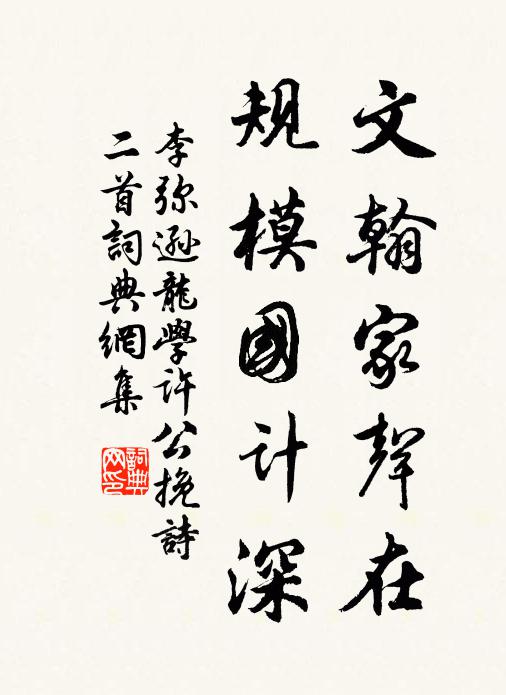 文翰家聲在
規模國计深
李弥遜龍學許公挽詩
二首詞典網集
詞典
网印